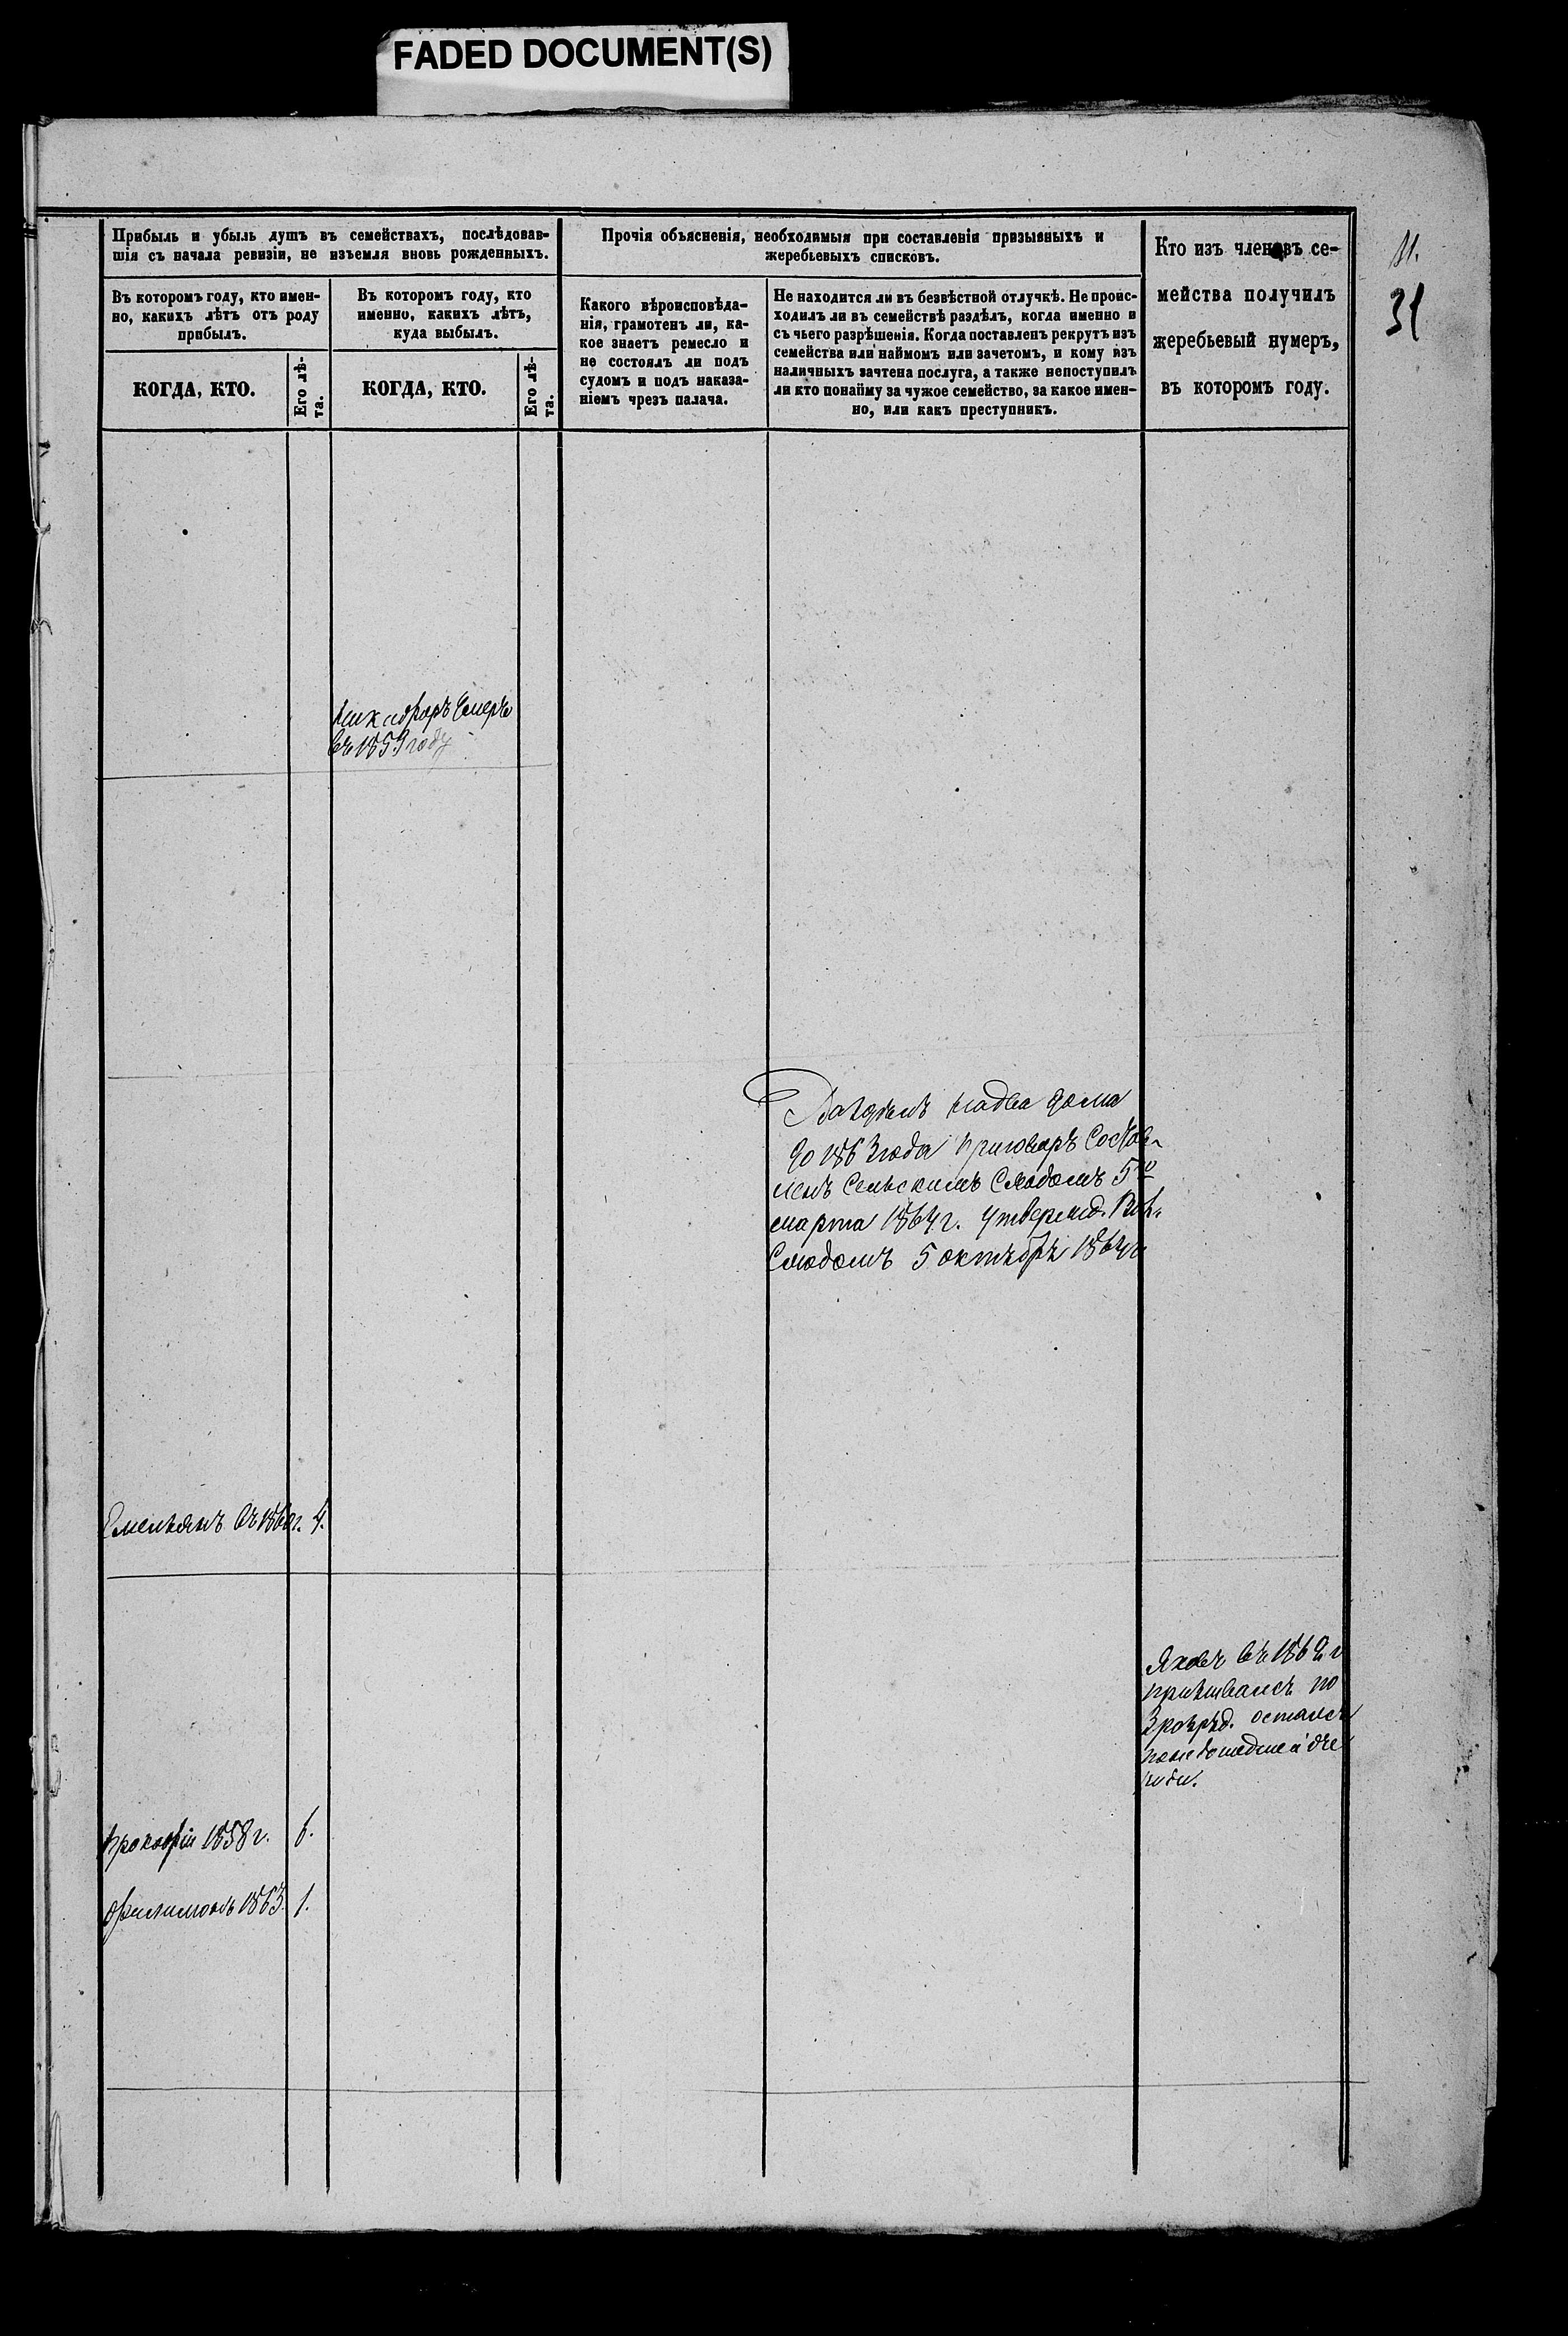 FADED DOCUMENT(S)
Прибыль и убыль душъ въ семействахъ, послѣдовав-
шія съ начала ревизіи, не изъемля вновь рожденныхъ.
Прочія объясненія, необходимыя при составленіи призывныхъ и
жеребьевыхъ списковъ.
Кто изъ членовъ се-
мейства получилъ
жеребьевый нумеръ,
въ которомъ году.
31
Въ которомъ году, кто имен-
но, какихъ лѣтъ отъ роду
прибылъ.
Въ которомъ году, кто
именно, какихъ лѣтъ,
куда выбылъ.
Какого вѣроисповѣда-
нія, грамотенъ ли, ка-
кое знаетъ ремесло и
не состоялъ ли подъ
судомъ и подъ наказа-
ніемъ чрезъ палача.
Не находится ли въ безвѣстной отлучкѣ. Не проис-
ходилъ ли въ семействѣ раздѣлъ, когда именно и
съ чьего разрѣшенія. Когда поставленъ рекрутъ изъ
семейства или наймомъ или зачетомъ, и кому изъ
наличныхъ зачтена послуга, а также непоступилъ
ли кто понайму за чужое семейство, за какое имен-
но, или какъ преступникъ.
КОГДА, КТО.
Его лѣ-
та.
КОГДА, КТО.
Его лѣ-
та.
Никифоръ Умеръ
въ 1859 году
Раздѣлъ на два дома
до 1863 года приговоръ Состав-
ленъ Сельскимъ Сходомъ 5го
марта 1864 г. Утвержд. Вол.
Сходомъ 5 октября 1864 г.
Емельянъ въ 1860 г. 4.
Яковъ въ 186 г
призывался по
3 розряд. остался
по недошедшей оче
реди.
Прокофій 1858 г. 6.
Филимонъ 1863. 1.